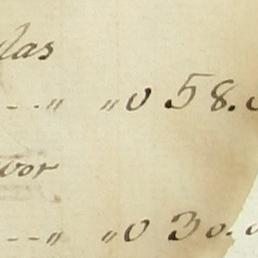 las
- - - " "0 58.
vor
- - - " "0 30.